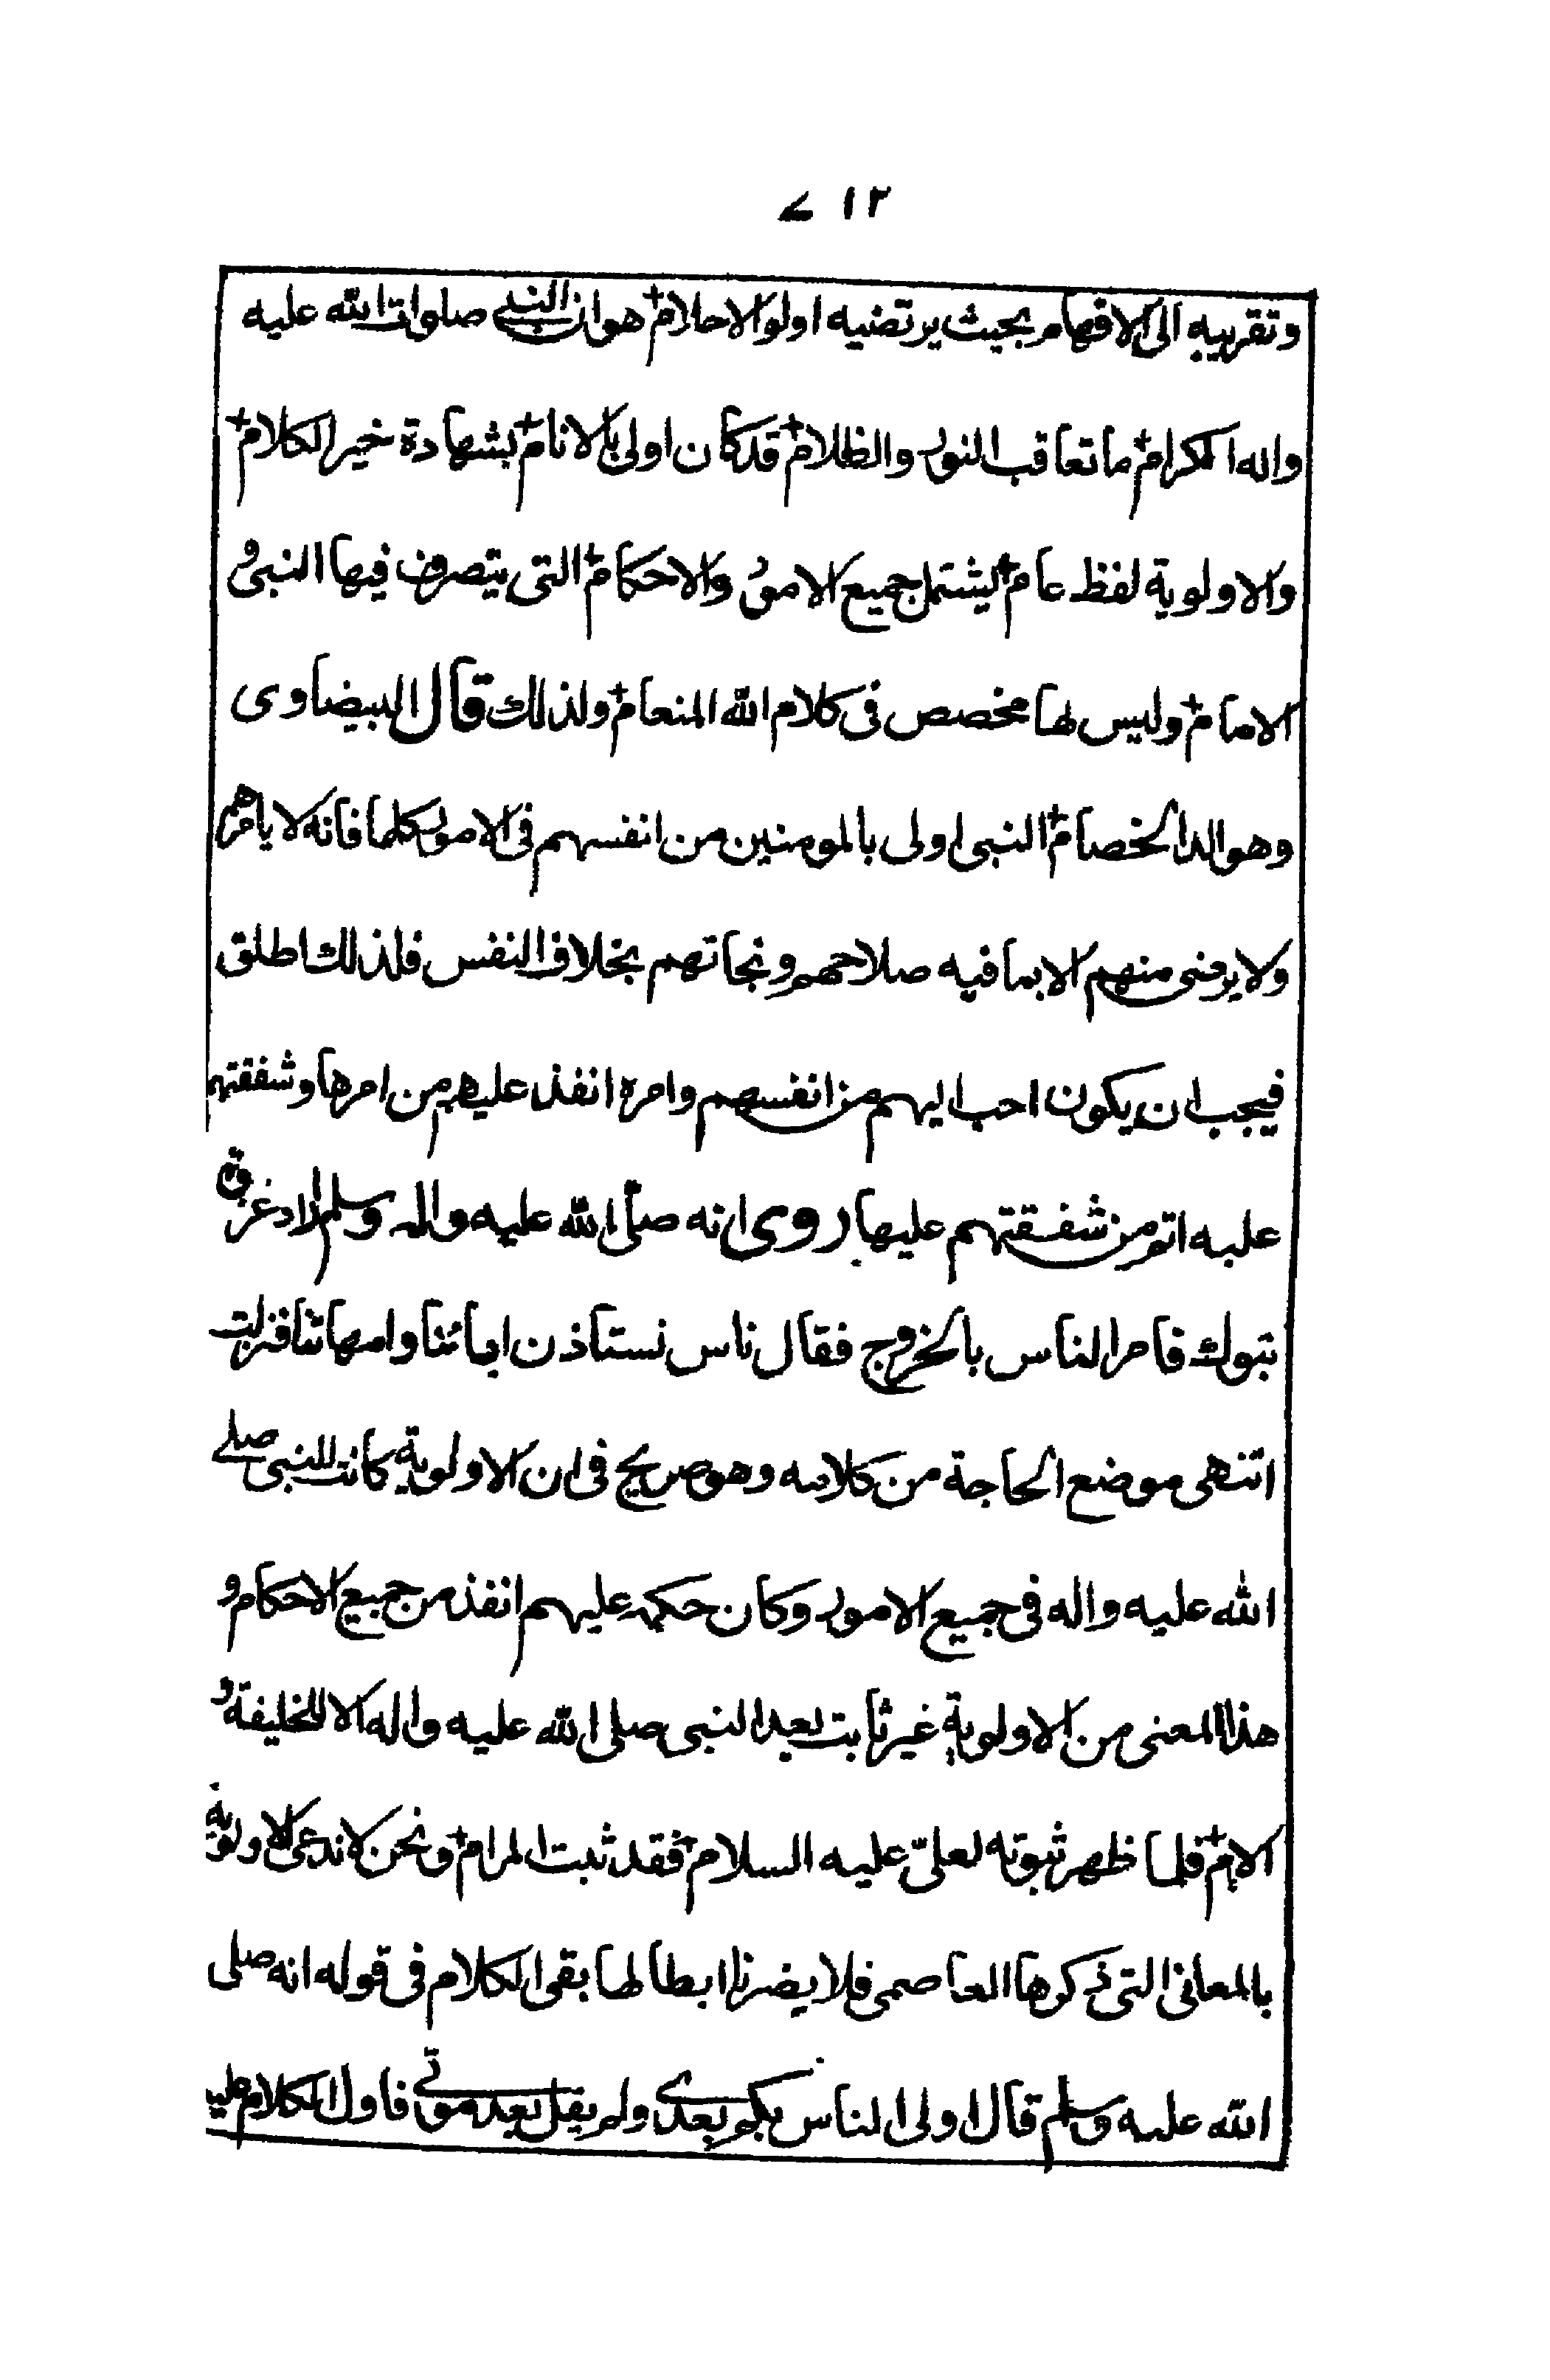 ٢١٧
وتقريبه الى الافهام بحيث يرتضيه اولو الاحلام+ هو ان النبى صلوات الله عليه
واله الكرام+ ما تعاقب النور والظلام+ قد كان اولى بالانام+ بشهادة خير الكلام+
والاولوية لفظ عام+ ليشتمل جميع الامور والاحكام+ التى يتصرف فيها النبى و
الامام+ وليس لها مخصص فى كلام الله المنعام+ ولذلك قال البيضاوى
وهو الد الخصام+ النبى اولى بالمومنين من انفسهم فى الامور كلها فانه لا يامرهم
ولا يرضى منهم الا بما فيه صلاحهم ونجاتهم بخلاف النفس فلذلك اطلق
فيجب ان يكون احب اليهم من انفسهم وامره انفذ عليهم من امرها وشفقتهم
عليه اتم من شفقتهم عليها روى انه صلّى الله عليه واله وسلم اراد غزوة
تبوك فامر الناس بالخروج فقال ناس نستاذن ابائنا وامهاتنا فنزلت
انتهى موضع الحاجة من كلامه وهو صريح فى ان الاولوية كانت للنبى صلى
الله عليه واله فى جميع الامور وكان حكمه عليهم انفذ من جميع الاحكام و
هذا المعنى من الاولوية غير ثابت بعد النبى صلى الله عليه واله الا للخليفة و
الامام+ فلما ظهر ثبوته لعلىّ عليه السلام+ فقد ثبت المرام+ ونحن لا ندعى الاولوية
بالمعانى التى ذكرها العاصمى فلا يضرنا ابطالها بقى الكلام فى قوله انه صلى
الله عليه وسلم قال اولى الناس بكم بعدى ولم يقل بعد موتى فاول الكلام عليه